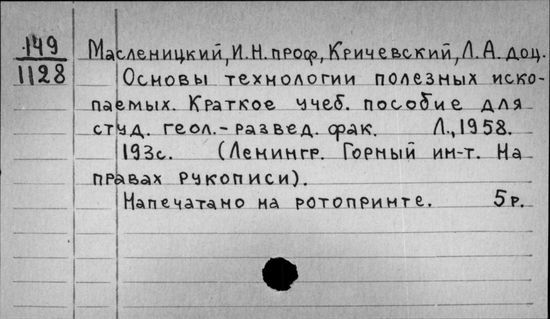 149
1128
Масленицкий, И.Н. проф, Кричевский, Л.А. доц.
Основы технологии полезных иско-
паемых. Краткое учеб. пособие для
студ. геол.-развед. фак. Л., 1958.
193с. (Ленингр. Горный ин-т. На
правах рукописи).
Напечатано на ротопринте. 5р.